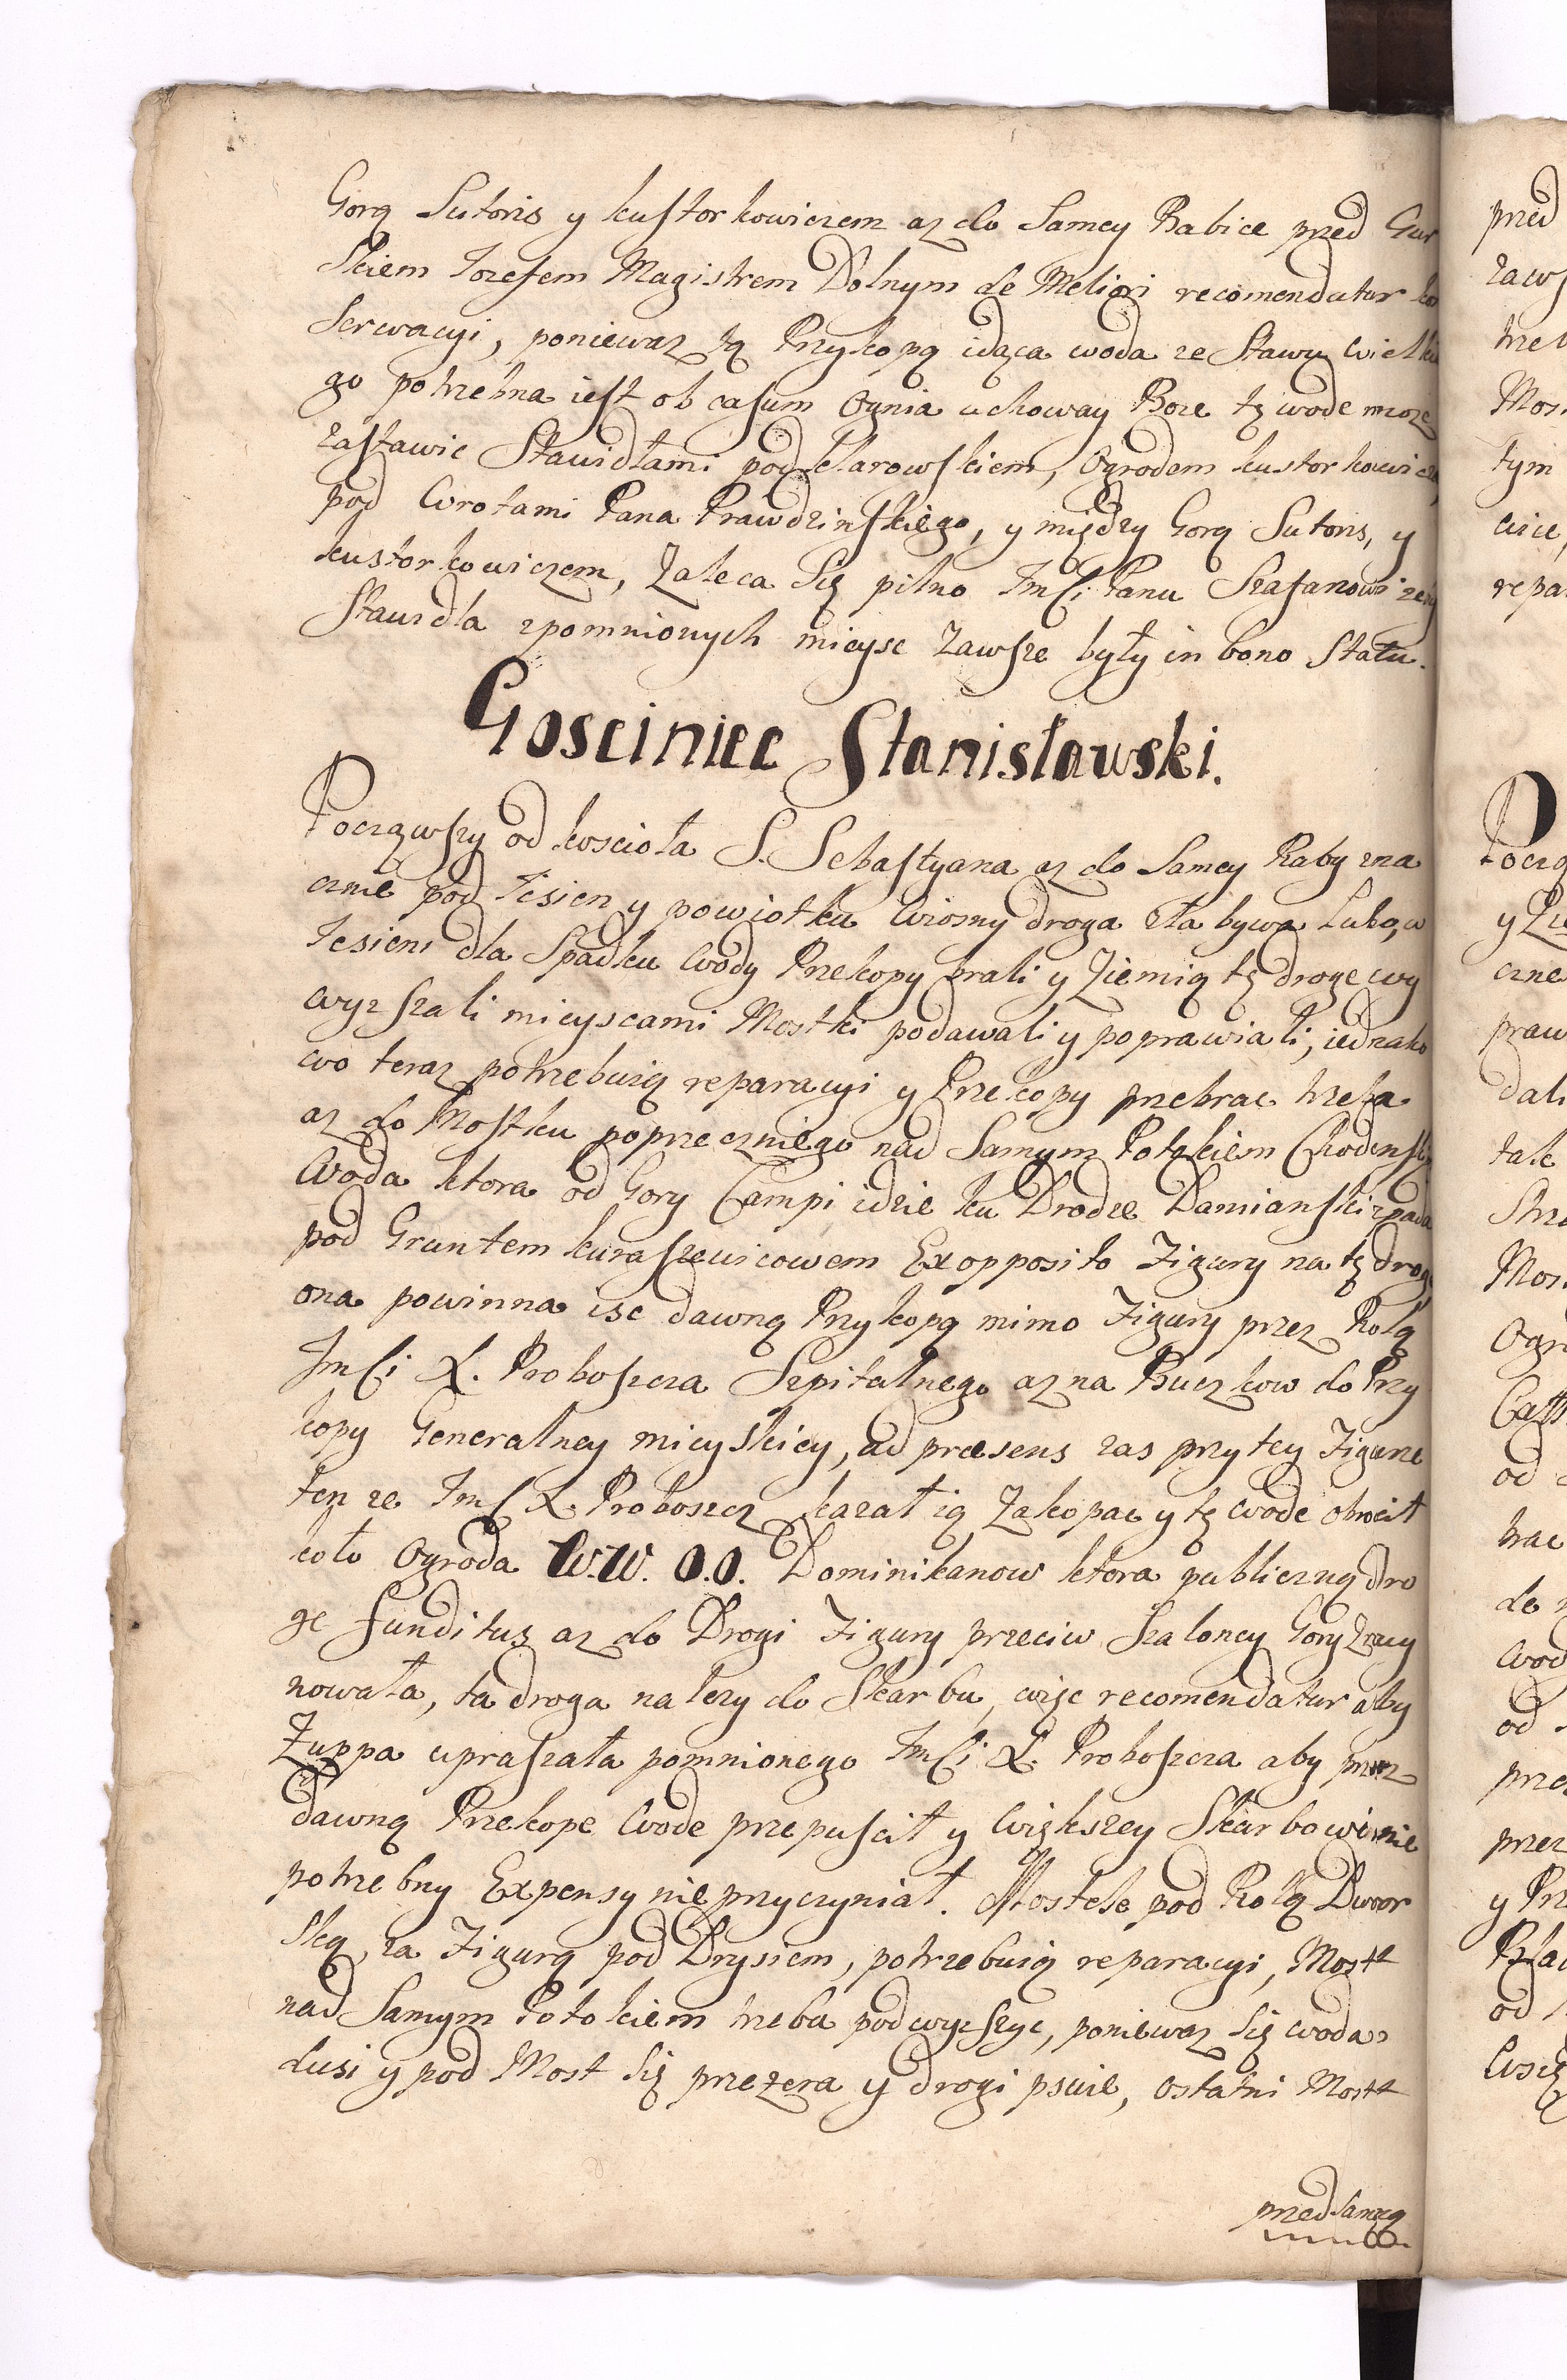 Gorą Sutoris y kustorkowiczem az do Samey Babice przed Gur
Skiem Jozefem Magistrem Dolnym de Meliori recomendatur ko
Serwacyi, poniewaz tą Przykopą idąca woda ze Stawu Wielkie
go potrzebna iest ob casum Ognia uchoway Boze tę wode moze
zastawic Stawidłami pod klarowskiem, Ogrodem kustorkowicza,
pod Wrotami Pana Prawdzinskiego, y między Gorą Sutoris, y
kustorkowiczem, Zaleca Się pilno Jmści Panu Szafanowi zeby
Stawidła zpomnionych mieysc Zawsze były in bono Statu.
Gosciniec Stanisławski.
Począwszy od koscioła S. Sebastyana az do Samey Raby zna
cznie pod Jesien y powiotku Wiosny droga zła bywa Lubo, w
Jesieni dla Spadku Wody Przekopy brali y Ziemią tę droge wy
wyzszali mieyscami Mostki podawali y poprawiali, iednako
wo teraz potrzebuią reparacyi y Przekopy przebrac trzeba
az do Mostku poprzeczniego nad Samym Potokiem Chodensk
Woda ktora od Gory Campi idzie ku Drodze Damianski zpada
pod Gruntem kuraszewicowem Exopposito Figury na tę droge
ona powinna isc dawną Przykopą mimo Figury przez Rolą
Jmści X. Proboszcza Szpitalnego az na Buczkow do Przy
kopy Generalney mieyskiey, ad præsens zas przy tey Figurze
ten ze Jmść X. Proboszcz kazał ią Zakopac y tę wode obrocił
koło Ogroda W.W. O.O. Dominikanow ktora publiczną dro
ge funditus az do Drogi Figury przeciw Szaloney Gory Zruy
nowała, ta droga nalezy do Skarbu, więc recomendatur aby
Zuppa upraszała pomnionego Jmści X. Proboszcza aby przez
dawną Przekope Wode przepuscił y Większey Skarbowi nie
potrzebny Expensy nie przyczyniał. Mostek pod Rolą Dwor
Ską, za Figurą pod Drysiem, potrzebuią reparacyi, Mostt
nad Samym Potokiem trzeba podwyzszyc, poniewaz Się woda
dusi y pod Most Się przezera y drogi psuie, ostatni Mostt
przed Samą